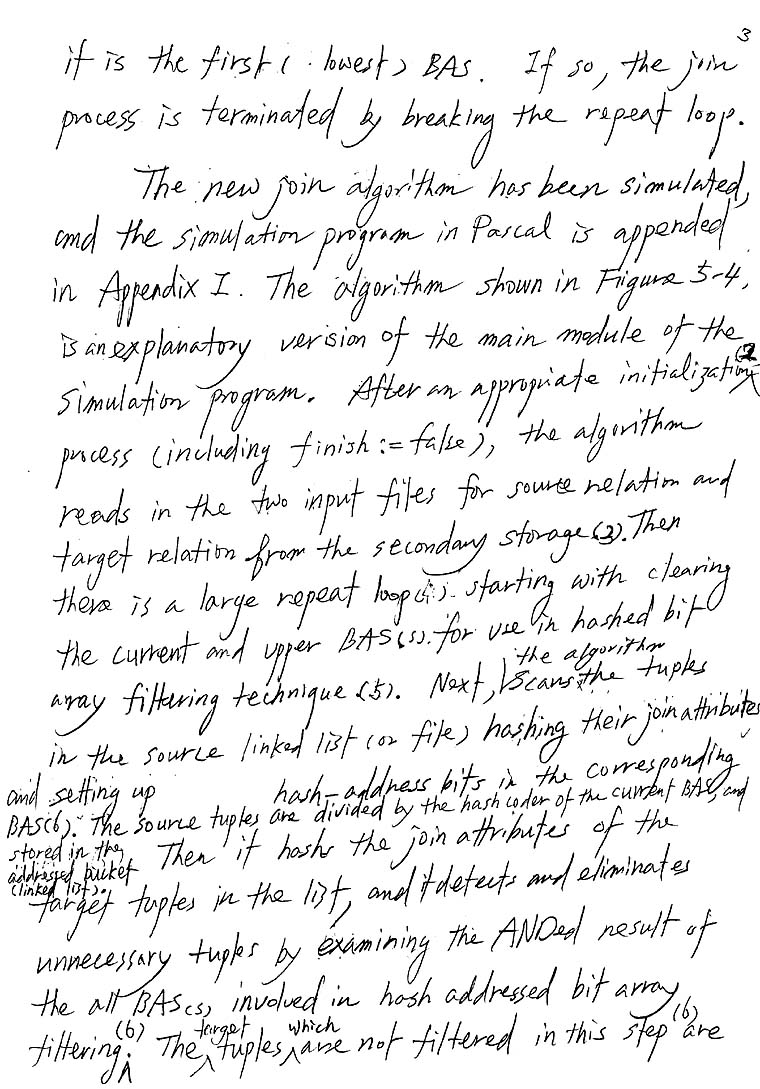 3
it is the first ( lowest) BAs. If so, the join
process is terminated by breaking the repeat loop.
The new join algorithm has been simulated,
and the simulation program in Pascal is appended
in Appendix I. The algorithm shown in Figure 5-4,
is an explanatory version of the main module of the
simulation program. After an appropriate initialization (2
process (including finish := false), the algorithm
reads in the two input files for source relation and
target relation from the secondary storage (3). Then
there is a large repeat loop starting with clearing
the current and upper BAS(s) for use in hashed bit
array filtering technique (5). Next, the algorithm scans the tuples
in the source linked list (or file) hashing their join attributes
and setting up hash-address bits in the corresponding
BAS(6). The source tuples are divided by the hash coder of the current BAS, and
stored in the
addressed bucket
(linked list). Then it hashs the join attributes of the
target tuples in the list, and it detects and eliminates
unnecessary tuples by examining the ANDed result of
the all BAS(s) involved in hash addressed bit array
filtering (6). The target tuples which are not filtered in this step (6) are